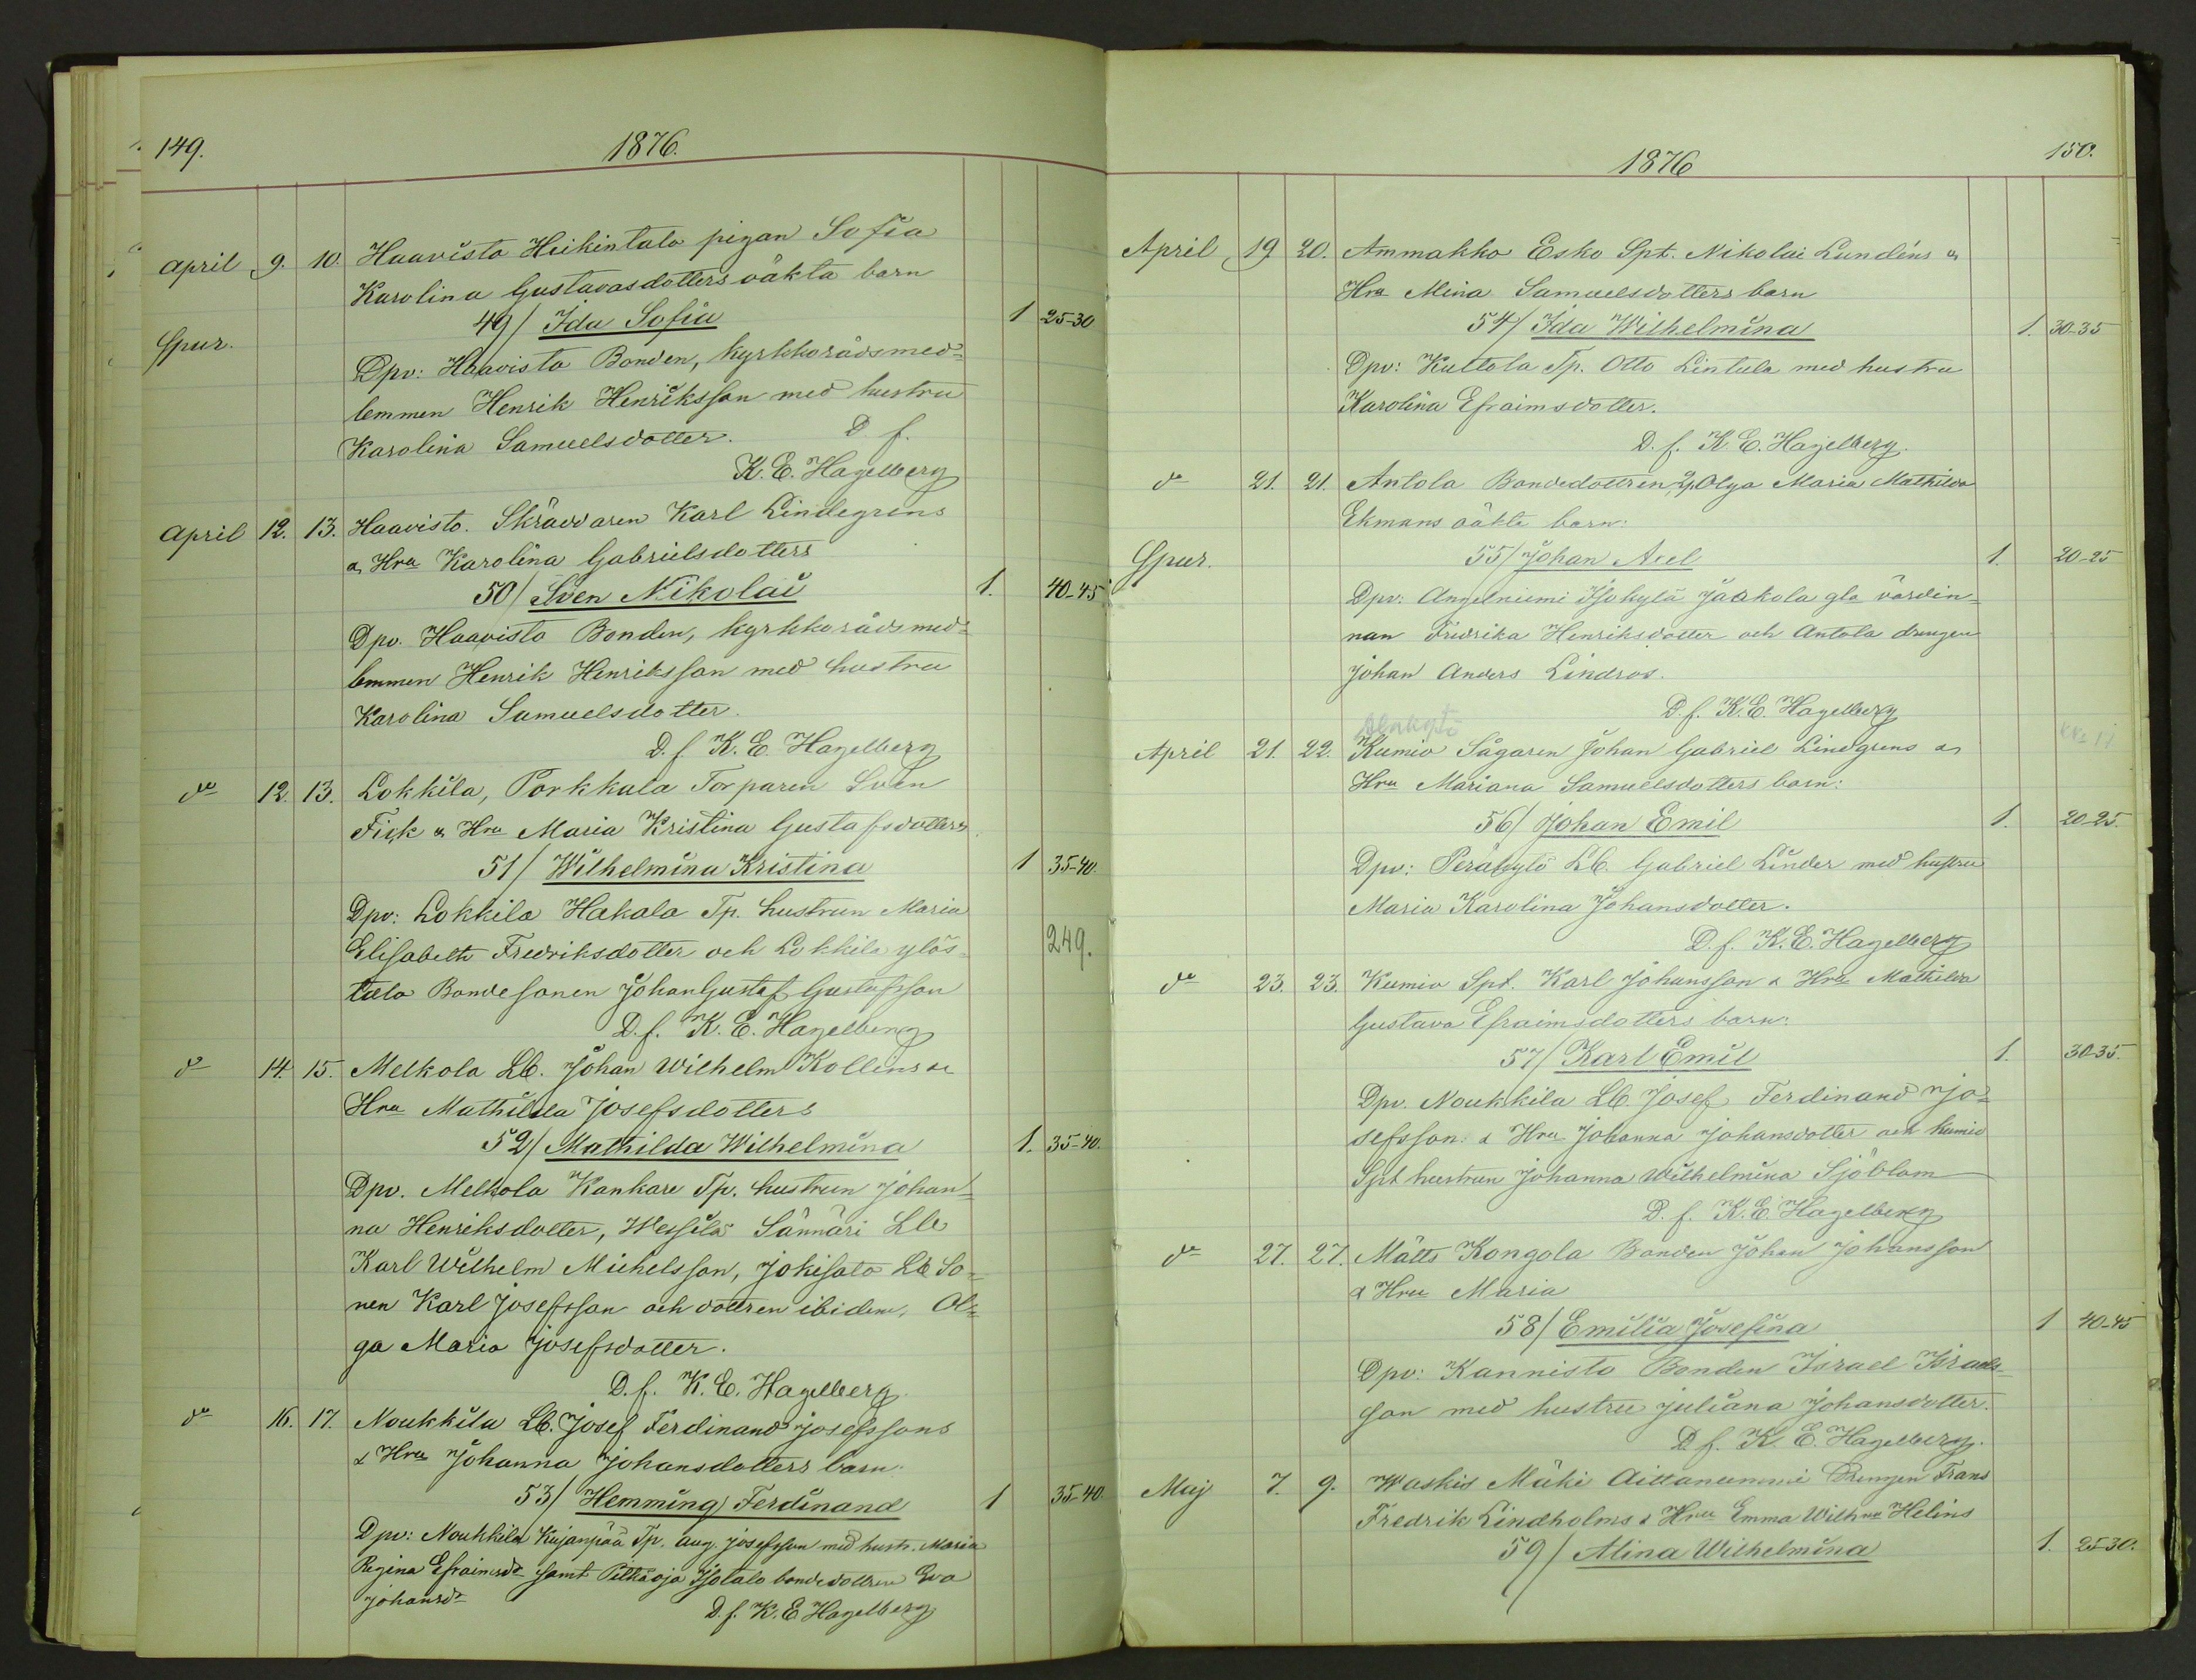 149.
1876.
April 9. 10. Haavisto Heikintalo pigan Sofia
Karolina Gustavasdotters oäkta barn
49/ Ida Sofia 1 25-30
Spur.
Dpv: Haavisto Bonden, kyrkkorådsmed=
lemmen Henrik Henriksson med hustru
Karolina Samuelsdotter. D f.
K. E. Hagelberg
April 12. 13. Haavisto. Skräddaren Karl Lindegrens
& Hru Karolina Gabrielsdotters
50/ Sven Nikolai 1. 40-45
Dpv. Haavisto Bonden, kyrkkorådsmed=
lemmen Henrik Henriksson med hustru
Karolina Samuelsdotter.
D. f. K. E. Hagelberg
do 12. 13. Lokkila, Porkkala Torparen Sven
Fisk & Hru Maria Kristina Gustafsdotters
51/ Wilhelmina Kristina 1 35-40.
Dpv: Lokkila Hakala Tp. hustrun Maria
Elisabeth Fredriksdotter och Lokkila ylös=
249.
talo Bondesonen Johan Gustaf Gustafsson
D. f. K. E. Hagelberg
do 14. 15. Melkola Lb. Johan Wilhelm Kollins &
Hru Mathilda Josefsdotters
52/ Mathilda Wilhelmina 1. 35-40.
Dpv. Melkola Kankare Tp. hustrun Johan=
na Henriksdotter, Wessilä Sännäri Lb
Karl Wilhelm Michelsson, Jokisalo Lb So=
nen Karl Josefsson och dottren ibidem, Ol=
ga Maria Josefsdotter.
D. f. K. E. Hagelberg.
do 16. 17. Noukkila Lb. Josef Ferdinand Josefssons
& Hru Johanna Johansdotters barn.
53/ Hemming Ferdinand 1 35-40.
Dpv: Noukkila Kujanpää Tp. Aug. Josefsson med hustr. Maria
Regina Efraimsdr samt Pitkäoja Isotalo bondedottren Eva
Johansdr
D. f. K. E Hagelberg
1876
150.
April 19 20. Ammakko Esko Spt. Nikolai Lundéns &
Hru Mina Samuelsdotters barn
54/ Ida Wilhelmina 1. 30-35
Dpv: Kuttola Tp. Otto Lintula med hustru
Karolina Efraimsdotter.
D. f. K. E. Hagelberg.
do 21. 21. Antola Bondedottren Olga Maria Mathilda
Ekmans oäkta barn:
Spur.
55/ Johan Axel 1. 20-25
Dpv: Angelniemi Isokylä Jaakola gla värdin=
nan Fredrika Henriksdotter och Antola drengen
Johan Anders Lindros.
D. f. K. E. Hagelberg
April 21. 22. Kumio Sågaren Johan Gabriel Lindgrens &
Hru Mariana Samuelsdotters barn:
56/ Johan Emil 1. 20-25.
Dpv: Peräkylä Lb. Gabriel Linder med hustru
Maria Karolina Johansdotter.
D. f. K. E. Hagelberg
do 23. 23. Kumio Spt. Karl Johansson & Hru Mathilda
Gustava Efraimsdotters barn:
57/ Karl Emil 1. 30-35.
Dpv. Noukkila Lb. Josef Ferdinand Jo=
sefsson & Hru Johanna Johansdotter och Kumio
Spt hustrun Johanna Wilhelmina Sjöblom
D. f. K. E. Hagelberg
do 27. 27. Mätts Kongola Bonden Johan Johansson
& Hru Maria
58/ Emilia Josefina 1 40-45
Dpv: Kannisto Bonden Israel Israels=
son med hustru Juliana Johansdotter.
D f. K. E. Hagelberg.
Maj 7. 9. Waskis Mäki Aittanummi Drengen Frans
Fredrik Lindholms & Hru Emma Wilhna Helins
59/ Alina Wilhelmina 1. 25-30.